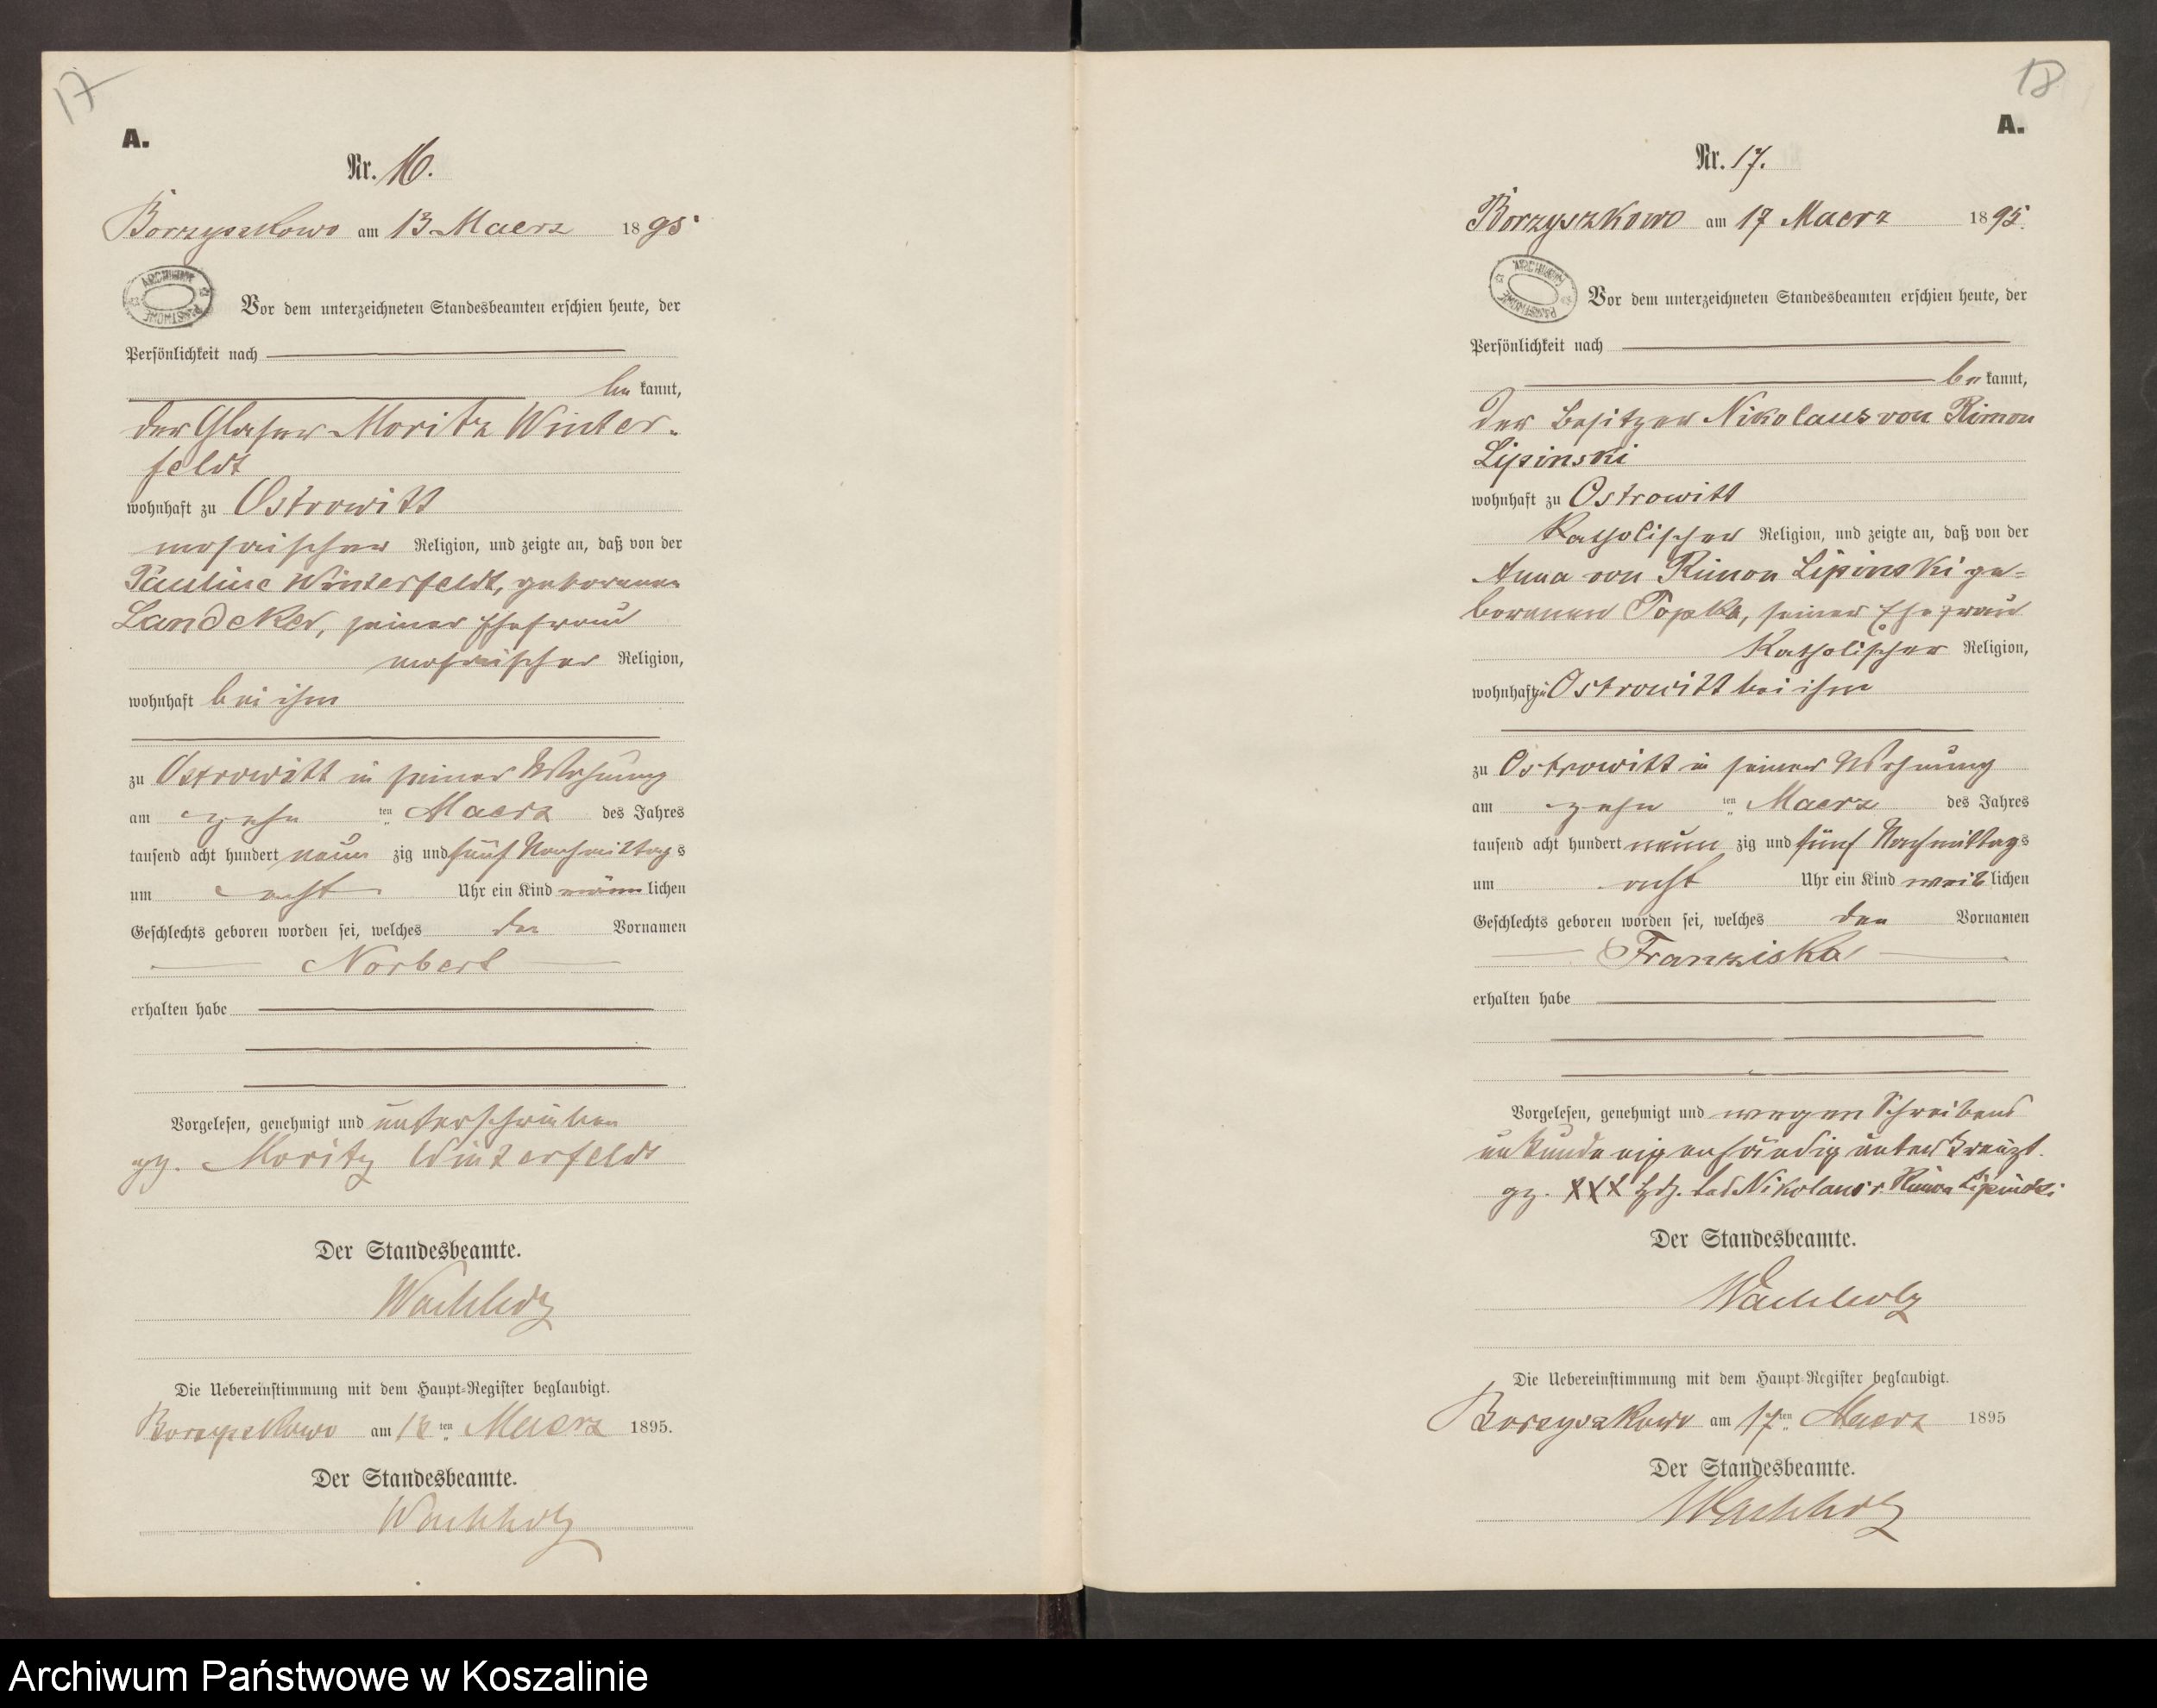 17
A.
Nr. 16.
Borzyszkowo am 13 Maerz 1895
ARCHIWUM PAŃSTWOWE
Vor dem unterzeichneten Standesbeamten erschien heute, der
Persönlichkeit nach
be kannt,
der Glaser Moritz Winter-
feldt
wohnhaft zu Ostrowitt
mosaischer Religion, und zeigte an, daß von der
Pauline Winterfeldt, geborenen
Landeker, seiner Ehefrau
mosaischer Religion,
wohnhaft bei ihm
zu Ostrowitt in seiner Wohnung
am zehn ten Maerz des Jahres
tausend acht hundert neun zig und fünf Nachmittags
um acht Uhr ein Kind männlichen
Geschlechts geboren worden sei, welches den Vornamen
Norbert
erhalten habe
Vorgelesen, genehmigt und unterschrieben
gz. Moritz Winterfeldt
Der Standesbeamte.
Wachholz
Die Uebereinstimmung mit dem Haupt-Register beglaubigt.
Borzyszkowo am ten Maerz 1895.
Der Standesbeamte.
Wachholz
18
A.
Nr. 17.
Borzyszkowo am 17 Maerz 1895.
ARCHIWUM PAŃSTWOWE
Vor dem unterzeichneten Standesbeamten erschien heute, der
Persönlichkeit nach
be kannt,
der Besitzer Nikolaus von Rimon
Lipinski
wohnhaft zu Ostrowitt
Katholischer Religion, und zeigte an, daß von der
Anna von Rimon Lipinski ge-
borenen Topka, seiner Ehefrau
Katholischer Religion,
wohnhaft zu Ostrowitt bei ihm
zu Ostrowitt in seiner Wohnung
am zehn ten Maerz des Jahres
tausend acht hundert neun zig und fünf Nachmittags
um acht Uhr ein Kind weiblichen
Geschlechts geboren worden sei, welches den Vornamen
Franziska
erhalten habe
Vorgelesen, genehmigt und wegen Schreibens
unkunde eigenhändig unterkreuzt.
gz. XXX Hdz. des Nikolaus v. Rimon Lipinski
Der Standesbeamte.
Wachholz
Die Uebereinstimmung mit dem Haupt-Register beglaubigt.
Borzyszkowo am 17ten Maerz 1895
Der Standesbeamte.
Wachholz
Archiwum Państwowe w Koszalinie